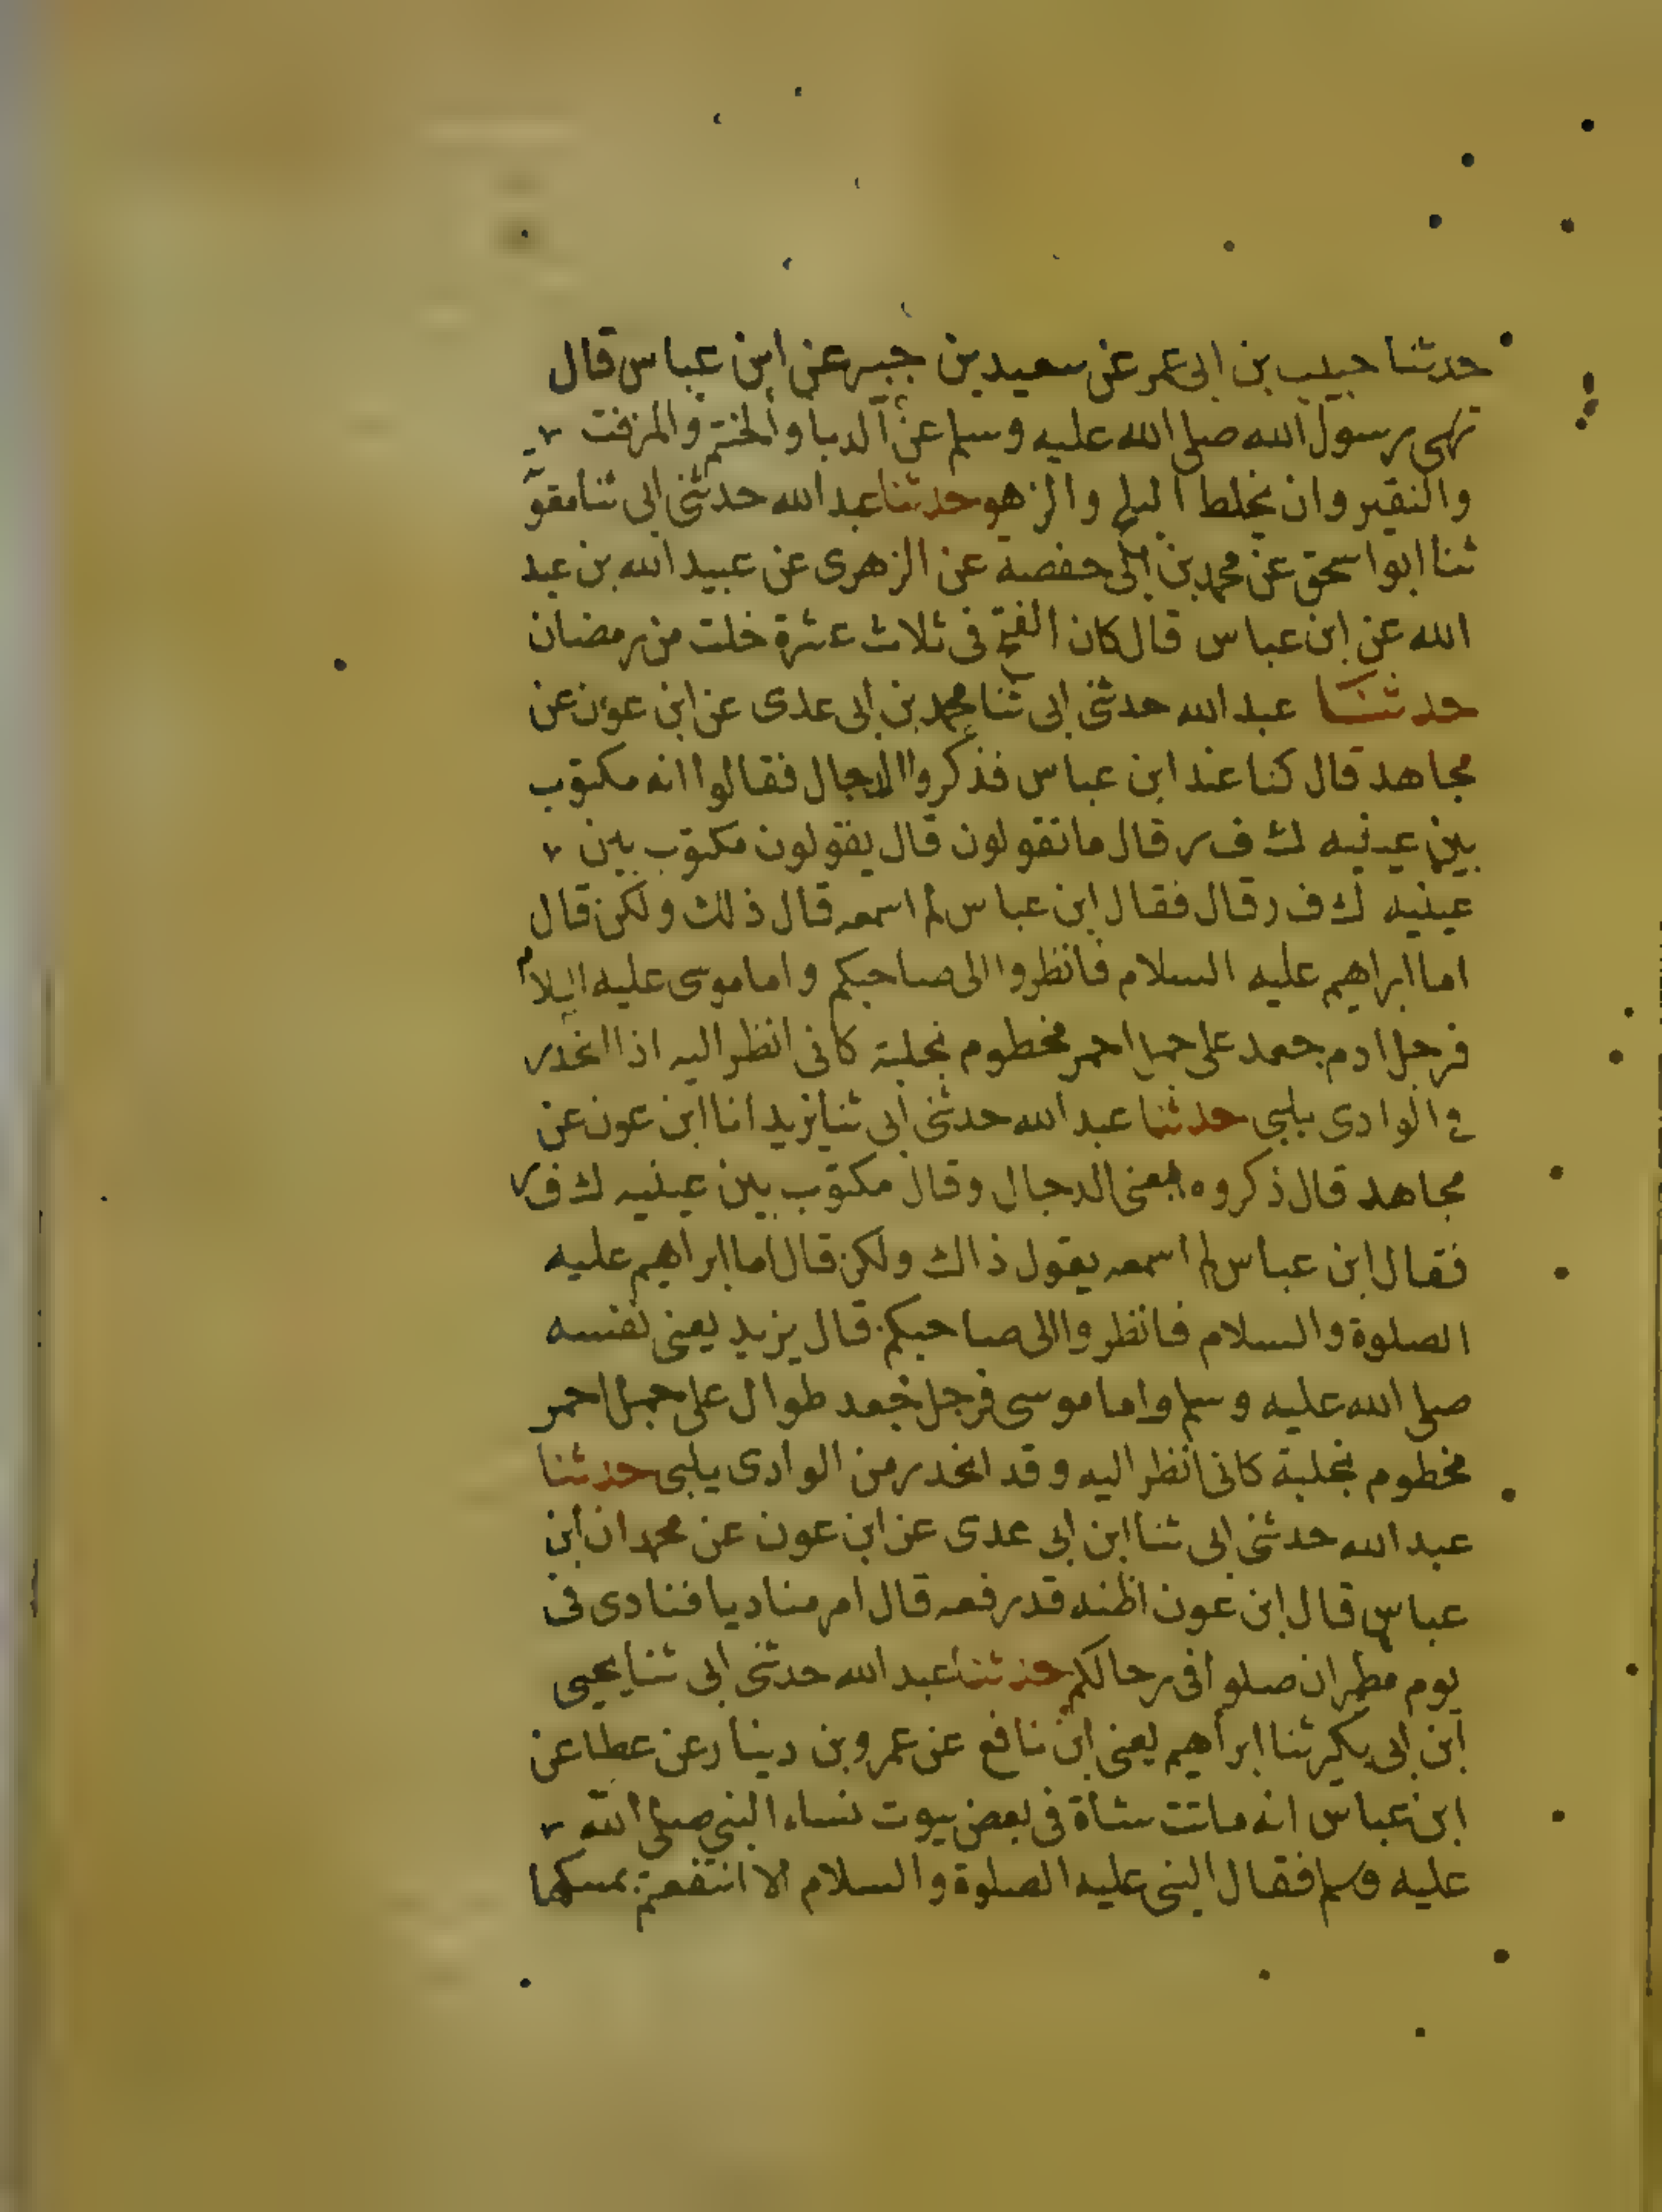 حدثنا حبيب بن ابى عمر عن سعيد بن جبير عن ابن عباس قال
نهى رسول الله صلى الله عليه وسلم عن الدبا والحنتم والمزفت
والنقير وان يخلط البلح والزهو حدثنا عبد الله حدثنى ابى ثنا
ثنا ابوا سحق عن محمد بن ابى حفصة عن الزهرى عن عبيد الله بن عبد
الله عن ابن عباس قال كان الفتح فى ثلاث عشرة خلت من رمضان
حدثنا عبد الله حدثنى ابى ثنا محمد بن ابى عدى عن ابن عون عن
مجاهد قال كنا عند ابن عباس فذكروا الدجال فقالوا انه مكتوب
بين عينيه ك ف ر قال ما تقولون قال يقولون مكتوب بين
عينيه ك ف ر قال فقال ابن عباس لم اسمعه قال ذلك ولكن قال
اما ابراهيم عليه السلام فانظروا الى صاحبكم واما موسى عليه السلام
فرجل ادم جعد على جمل احمر مخطوم بخلبة كانى انظر اليه اذا انحدر
فى الوادى يلبى حدثنا عبد الله حدثنى ابى ثنا يزيد انا ابن عون عن
مجاهد قال ذكروه يعنى الدجال وقال مكتوب بين عينيه ك ف ر
فقال ابن عباس لم اسمعه يقول ذاك ولكن قال اما ابراهيم عليه
الصلوة والسلام فانظروا الى صاحبكم قال يزيد يعنى نفسه
صلى الله عليه وسلم واما موسى فرجل جعد طوال على جمل احمر
مخطوم بخلبة كانى انظر اليه وقد انحدر من الوادى يلبى حدثنا
عبد الله حدثنى ابى ثنا ابن ابى عدى عن ابن عون عن محمد ان ابن
عباس قال ابن عون اظنه قد رفعه قال امر مناديا فنادى فى
يوم مطير ان صلوا فى رحالكم حدثنا عبد الله حدثنى ابى ثنا يحيى
ابن ابى بكير ثنا ابراهيم يعنى ابن نافع عن عمرو بن دينار عن عطا عن
ابن عباس انه ماتت شاة فى بعض بيوت نساء النبى صلى الله
عليه وسلم فقال النبى عليه الصلوة والسلام الا انتفعتم بمسكها